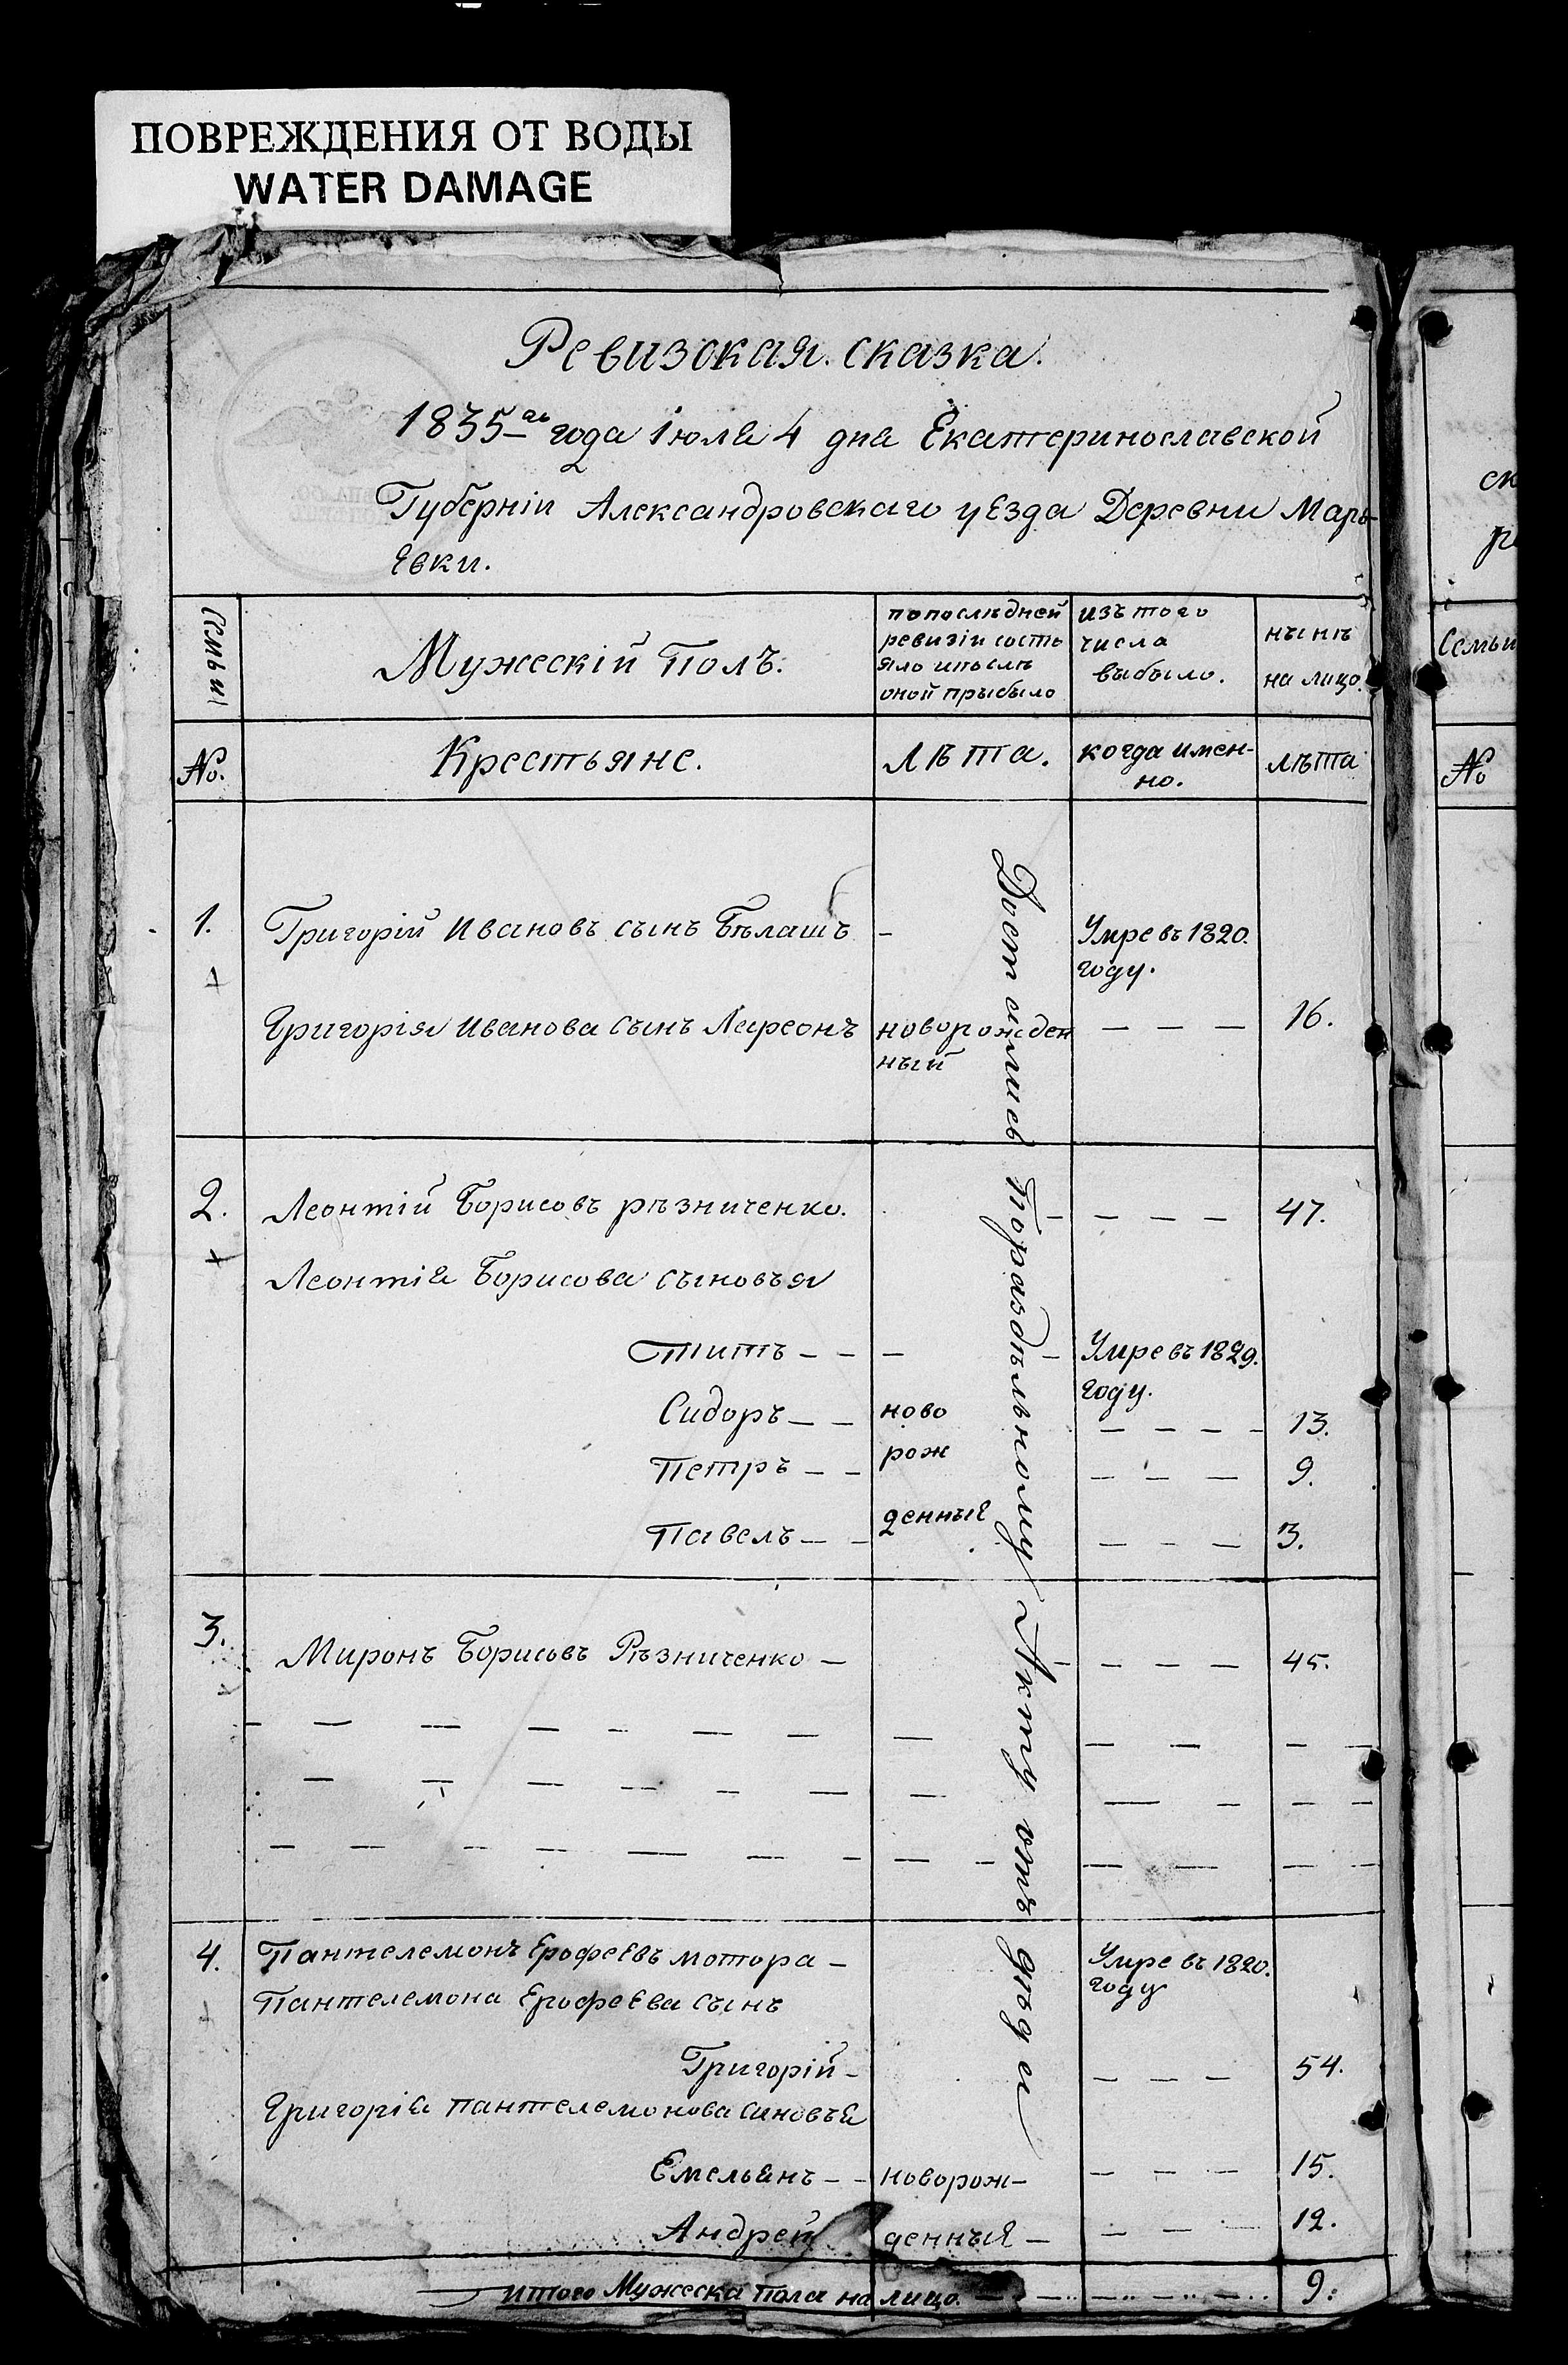 ПОВРЕЖДЕНИЯ ОТ ВОДЫ
WATER DAMAGE
Ревизская. сказка.
1835-го года Iюля 4 дня Екатеринославской
Губернiи Александровскаго уезда Деревни Марь-
евки.
Семьи
Мужескiй Полъ.
по последней
ревизiи состо
яло ипослѣ
оной прыбыло
изъ того
числа
выбыло.
нынѣ
на лицо.
No.
Крестьяне.
Лѣта.
когда имен-
но.
лѣта
1. Григорiй Ивановъ сынъ Бѣлашъ - Умре въ 1820.
году.
Григорiя Иванова сынъ Лареонъ новорожден - - - 16.
ный
2. Леонтiй Борисовъ рѣзниченко. - - - - 47.
Леонтiя Борисова сыновья
Титъ - - - - Умре въ 1829.
году.
Сидоръ - - ново - - - - 13.
Петръ - - рож - - - 9.
Павелъ - - денные - - - 3.
3. Миронъ Борисовъ Рѣзниченко - - - - - 45.
4. Пантелемонъ Ерофеевъ мотора - Умре въ 1820.
году
Пантелемона Ерофеева сынъ
Григорiй - - - - 54.
Григорiя пантелемонова синовъя
Емельянъ - - новорож- - - - 15.
Андрей денныя - - - - 12.
итого Мужеска пола на лицо. - - - - 9:
Достались Пораздѣльному Акту отъ дѣда
ск
Семьи
No